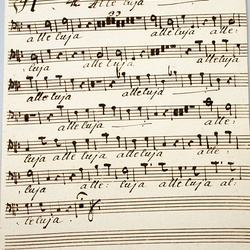 Alleluja
alleluja alleluja alle:
luja alleluja
alleluja alleluja
alleluja alleluja
luja alleluja alleluja
luja alle: luja alleluja al:
leluja.